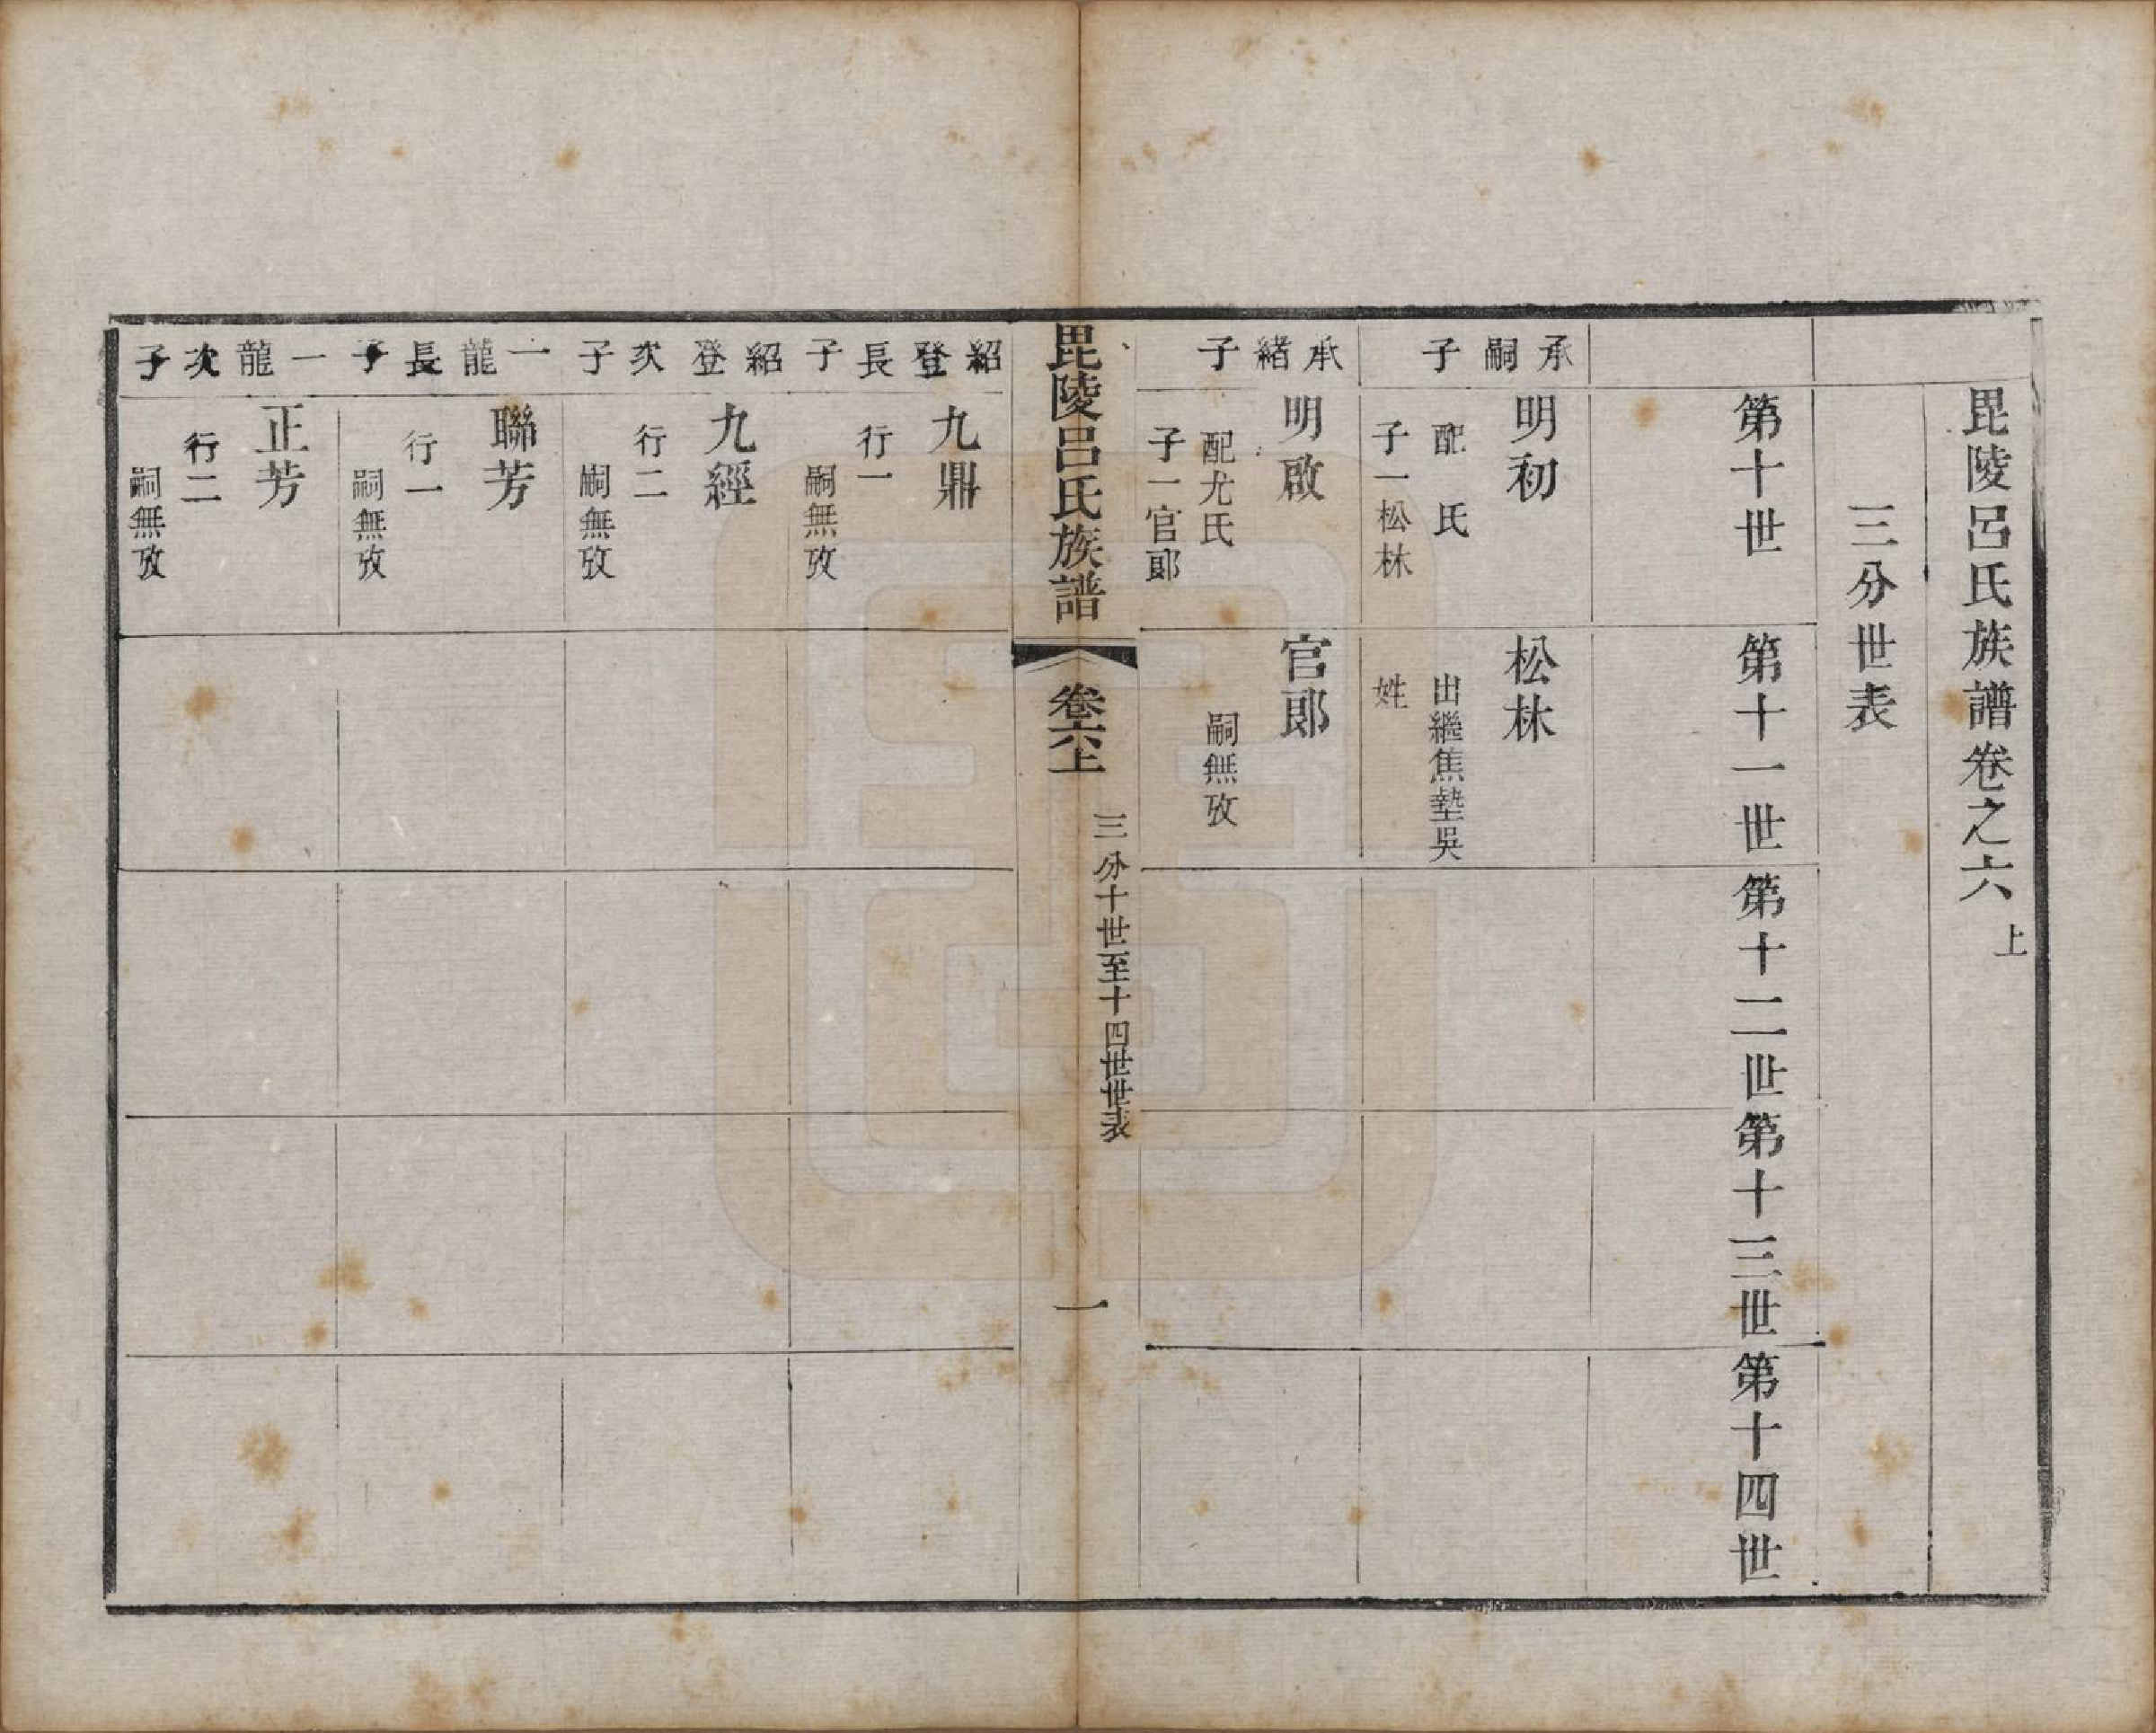 毘陵呂氏族譜卷之六上
三分世表
第十世
第十一世
第十二世
第十三世
第十四世
承嗣子
明初
配 氏
子一松林
松林
出繼焦墊吳
姓
承緒子
明啟
配尤氏
子一官郎
官郎
嗣無攷
毘陵呂氏族譜
卷六上
三分十世至十四世世表
一
紹登長子
九鼎
行一
嗣無攷
紹登次子
九經
行二
嗣無攷
一龍長子
聯芳
行一
嗣無攷
一龍次子
正芳
行二
嗣無攷